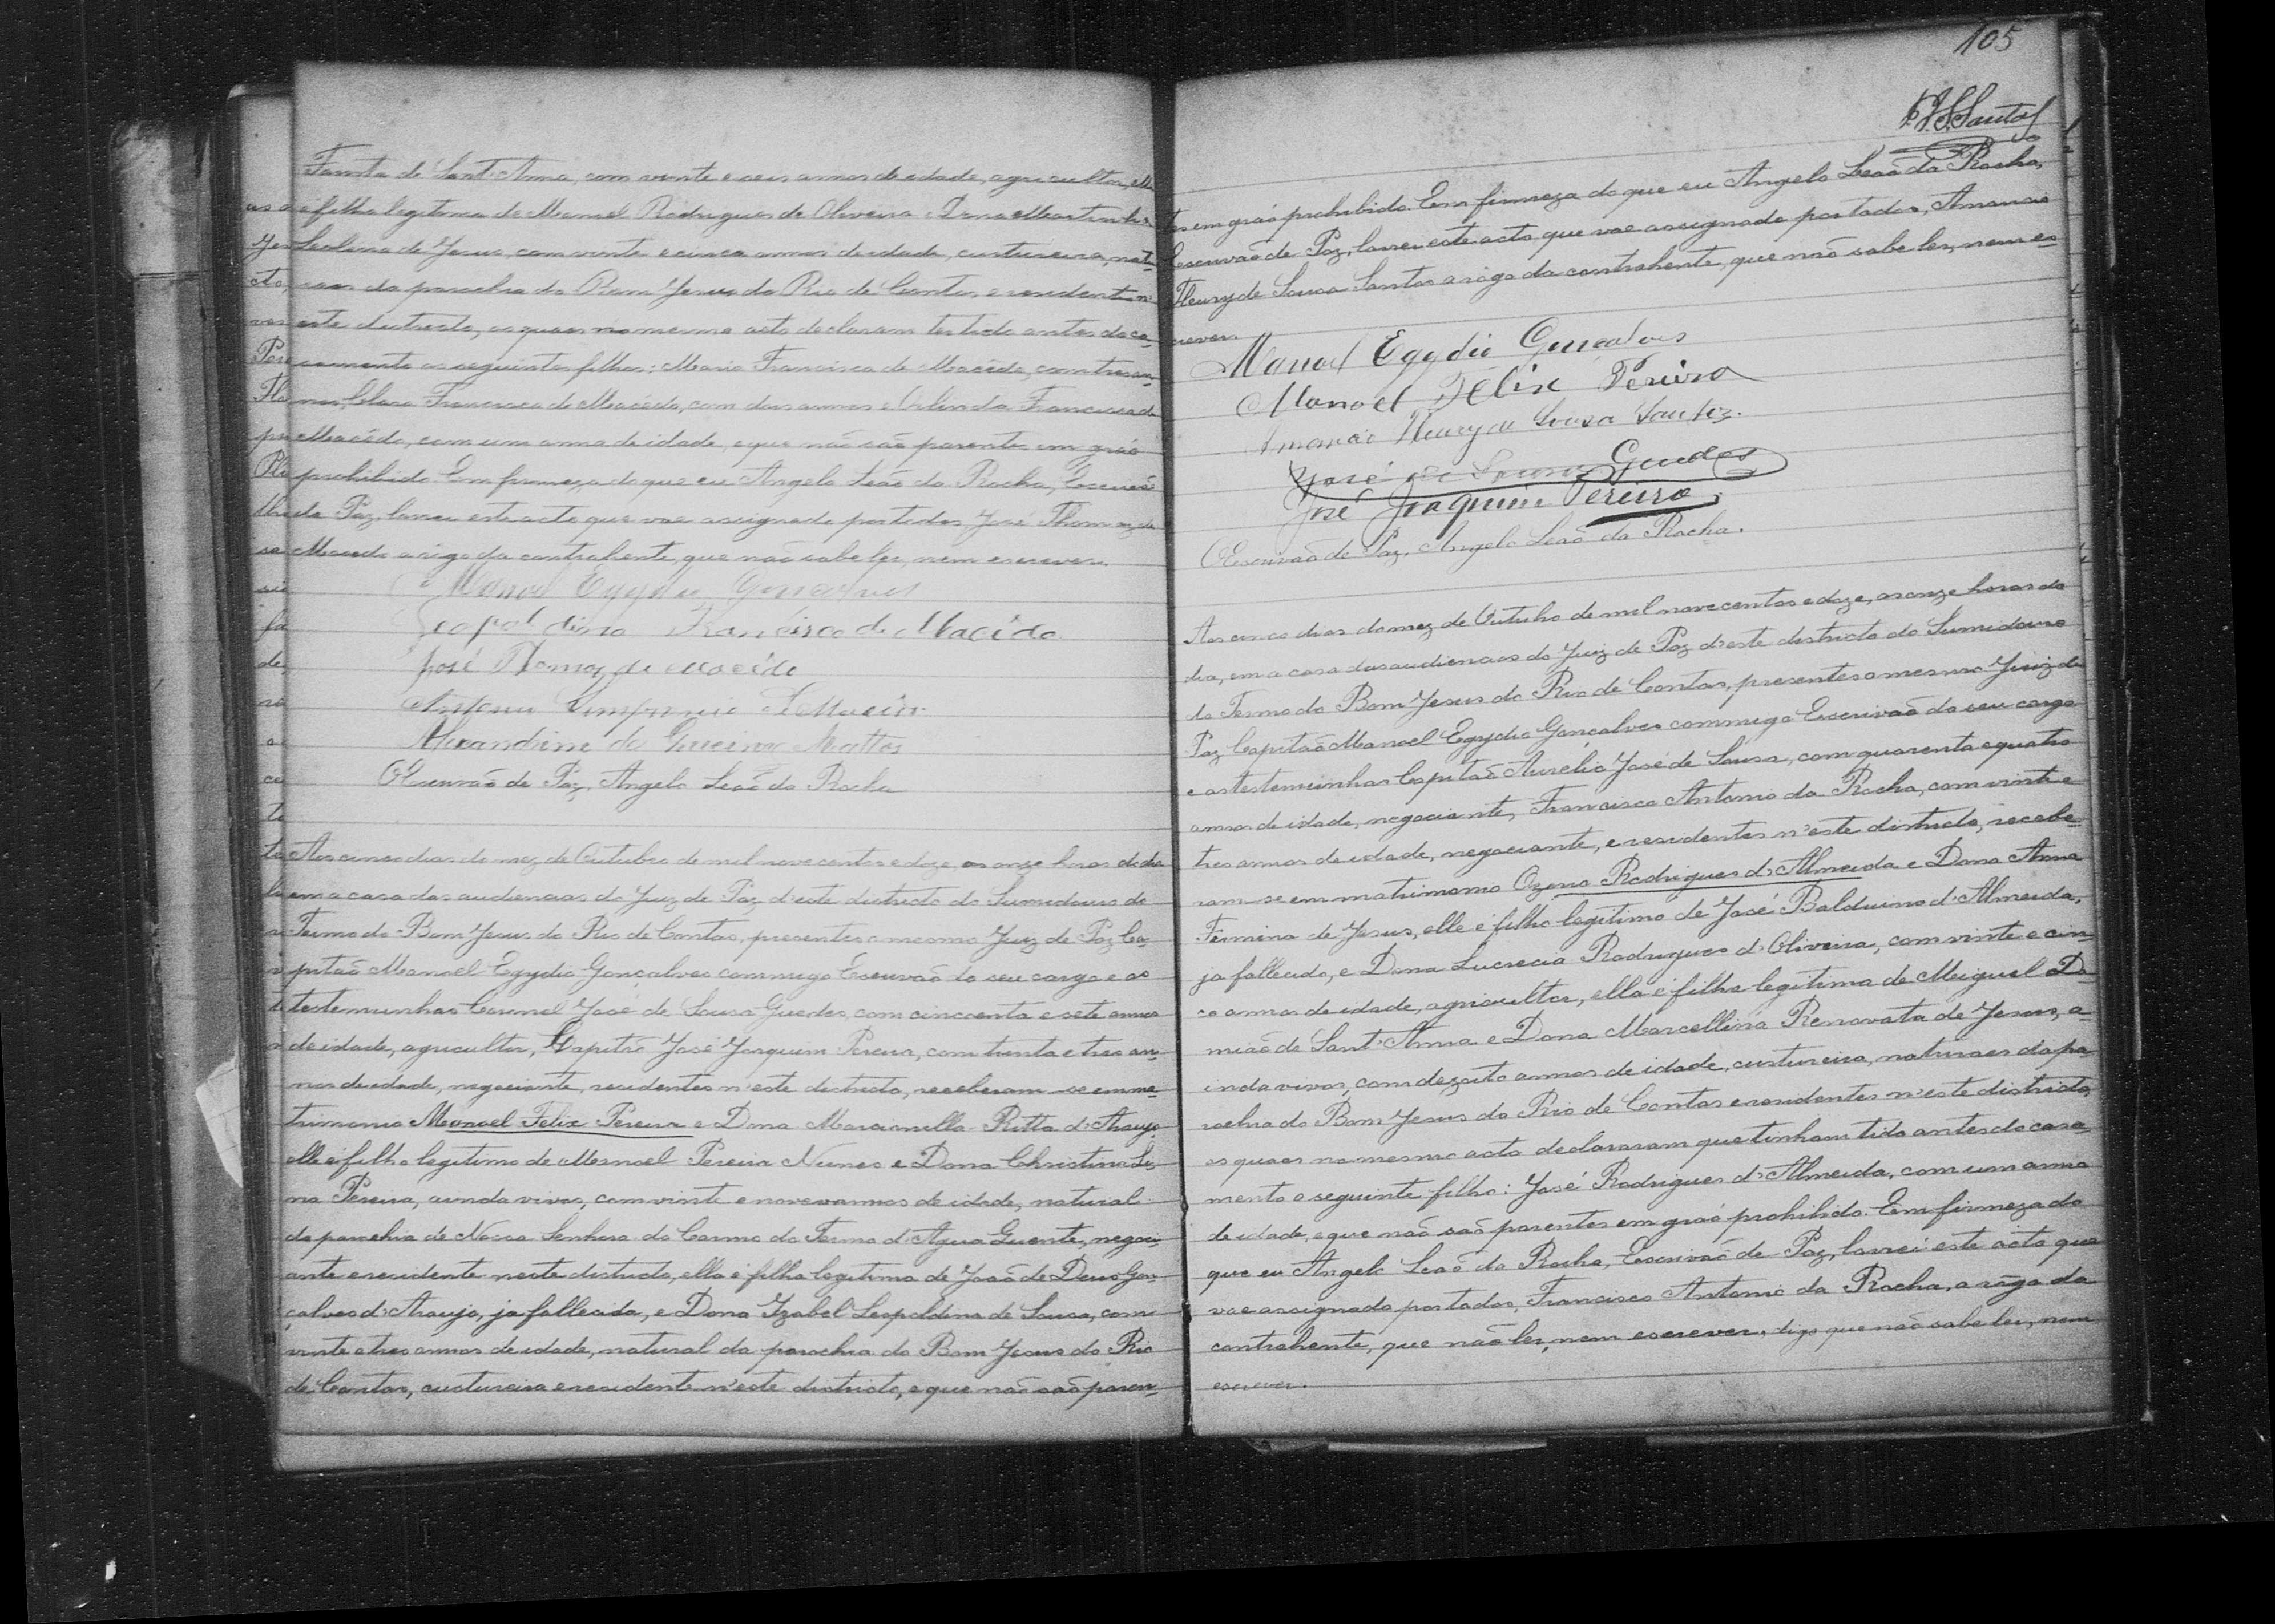 Fausta de Sant'Anna, com vinte e seis annos de idade, agricultor, ella
é filha legitima de Manoel Rodrigues de Oliveira e Dona Martinha
de Jesus, com vinte e cinco annos de idade, custureira, natu-
raes da parochia do Bom Jesus do Rio de Contas e residentes n'
este districto, os quaes no mesmo acto declaram ter tido antes do ca-
samento os seguintes filhos: Maria Francisca de Macêdo, com tres an-
nos, Clara Francisca de Macêdo, com dous annos e Arlinda Francisca de
Macêdo, com um anno de idade, e que não são parentes em gráo
prohibido. Em firmeza do que eu Angelo Leão da Rocha, Escrivão
de Paz, lavrei este acto que vae assignado por todos, José Thomaz de
Macedo a rôgo da contrahente, que não sabe ler, nem escrever.
Manoel Egydio Gonçalves
Leopoldino Francisco de Macêdo
José Thomaz de Macêdo
Antonio
Alexandrino de Mattos
O Escrivão de Paz, Angelo Leão da Rocha
Aos cinco dias do mez de Outubro de mil nove centos e doze, as onze horas do dia
em a casa das audiencias do Juiz de Paz d'este districto do Sumidouro do
Termo do Bom Jesus do Rio de Contas, presentes o mesmo Juiz de Paz Ca-
pitão Manoel Egydio Gonçalves commigo Escrivão do seu cargo e as
testemunhas Coronel José de Sousa Guedes, com cincoenta e sete annos
de idade, agricultor, Capitão José Joaquim Pereira, com trinta e tres an-
nos de idade, negociante, residentes n'este districto, receberam-se em ma-
trimonio Manoel Felix Pereira e Dona Marcionilla Ritta d'Araujo
elle é filho legitimo de Manoel Pereira Nunes e Dona Christina Li-
na Pereira, ainda vivos, com vinte e nove annos de idade, natural
da parochia de Nossa Senhora do Carmo do Termo d'Agua Quente, negoci-
ante e residente neste districto, ella é filha legitima de João de Deus Gon-
çalves d'Araujo, ja fallecido, e Dona Izabel Leopoldina de Sousa, com
vinte e tres annos de idade, natural da parochia do Bom Jesus do Rio
de Contas, custureira e residente n'este districto, e que não são paren-
105
Santos
tes em gráo prohibido. Em firmeza do que eu Angelo Leão da Rocha,
Escrivão de Paz, lavrei este acto que vae assignado por todos, Amancio
Fleury de Sousa Santos a rôgo da contrahente, que não sabe ler, nem es-
crever.
Manoel Egydio Gonçalves
Manoel Félix Pereira
Amancio Fleury de Sousa Santos.
José de Sousa Guedes
José Joaquim Pereira
O Escrivão de Paz, Angelo Leão da Rocha.
Aos cinco dias do mez de Outubro de mil nove centos e doze, as onze horas do
dia, em a casa das audiencias do Juiz de Paz d'este districto do Sumidouro
do Termo do Bom Jesus do Rio de Contas, presentes o mesmo Juiz de
Paz, Capitão Manoel Egydio Gonçalves commigo Escrivão do seu cargo
e as testemunhas Capitão Aurélio José de Sousa, com quarenta e quatro
annos de idade, negociante, Francisco Antonio da Rocha, com vinte e
tres annos de idade, negociante, e residentes n'este districto, recebe-
ram-se em matrimonio Ozeno Rodrigues d'Almeida e Dona Anna
Fermina de Jesus, elle é filho legitimo de José Balduino d'Almeida,
ja fallecido, e Dona Lucrecia Rodrigues d'Oliveira, com vinte e cin-
co annos de idade, agricultor, ella é filha legitima de Miguel Da-
mião de Sant'Anna e Dona Marcellina Renovata de Jesus, a-
inda vivos, com dezoito annos de idade, custureira, naturaes da pa-
rochia do Bom Jesus do Rio de Contas e residentes n'este districto,
os quaes no mesmo acto declararam que tinham tido antes do casa-
mento o seguinte filho: José Rodrigues d'Almeida, com um anno
de idade, e que não são parentes em gráo prohibido. Em firmeza do
que eu Angelo Leão da Rocha, Escrivão de Paz, lavrei este acto que
vae assignado por todos, Francisco Antonio da Rocha, a rôgo da
contrahente, que não ler, nem escrever, digo que não sabe ler, nem
escrever.